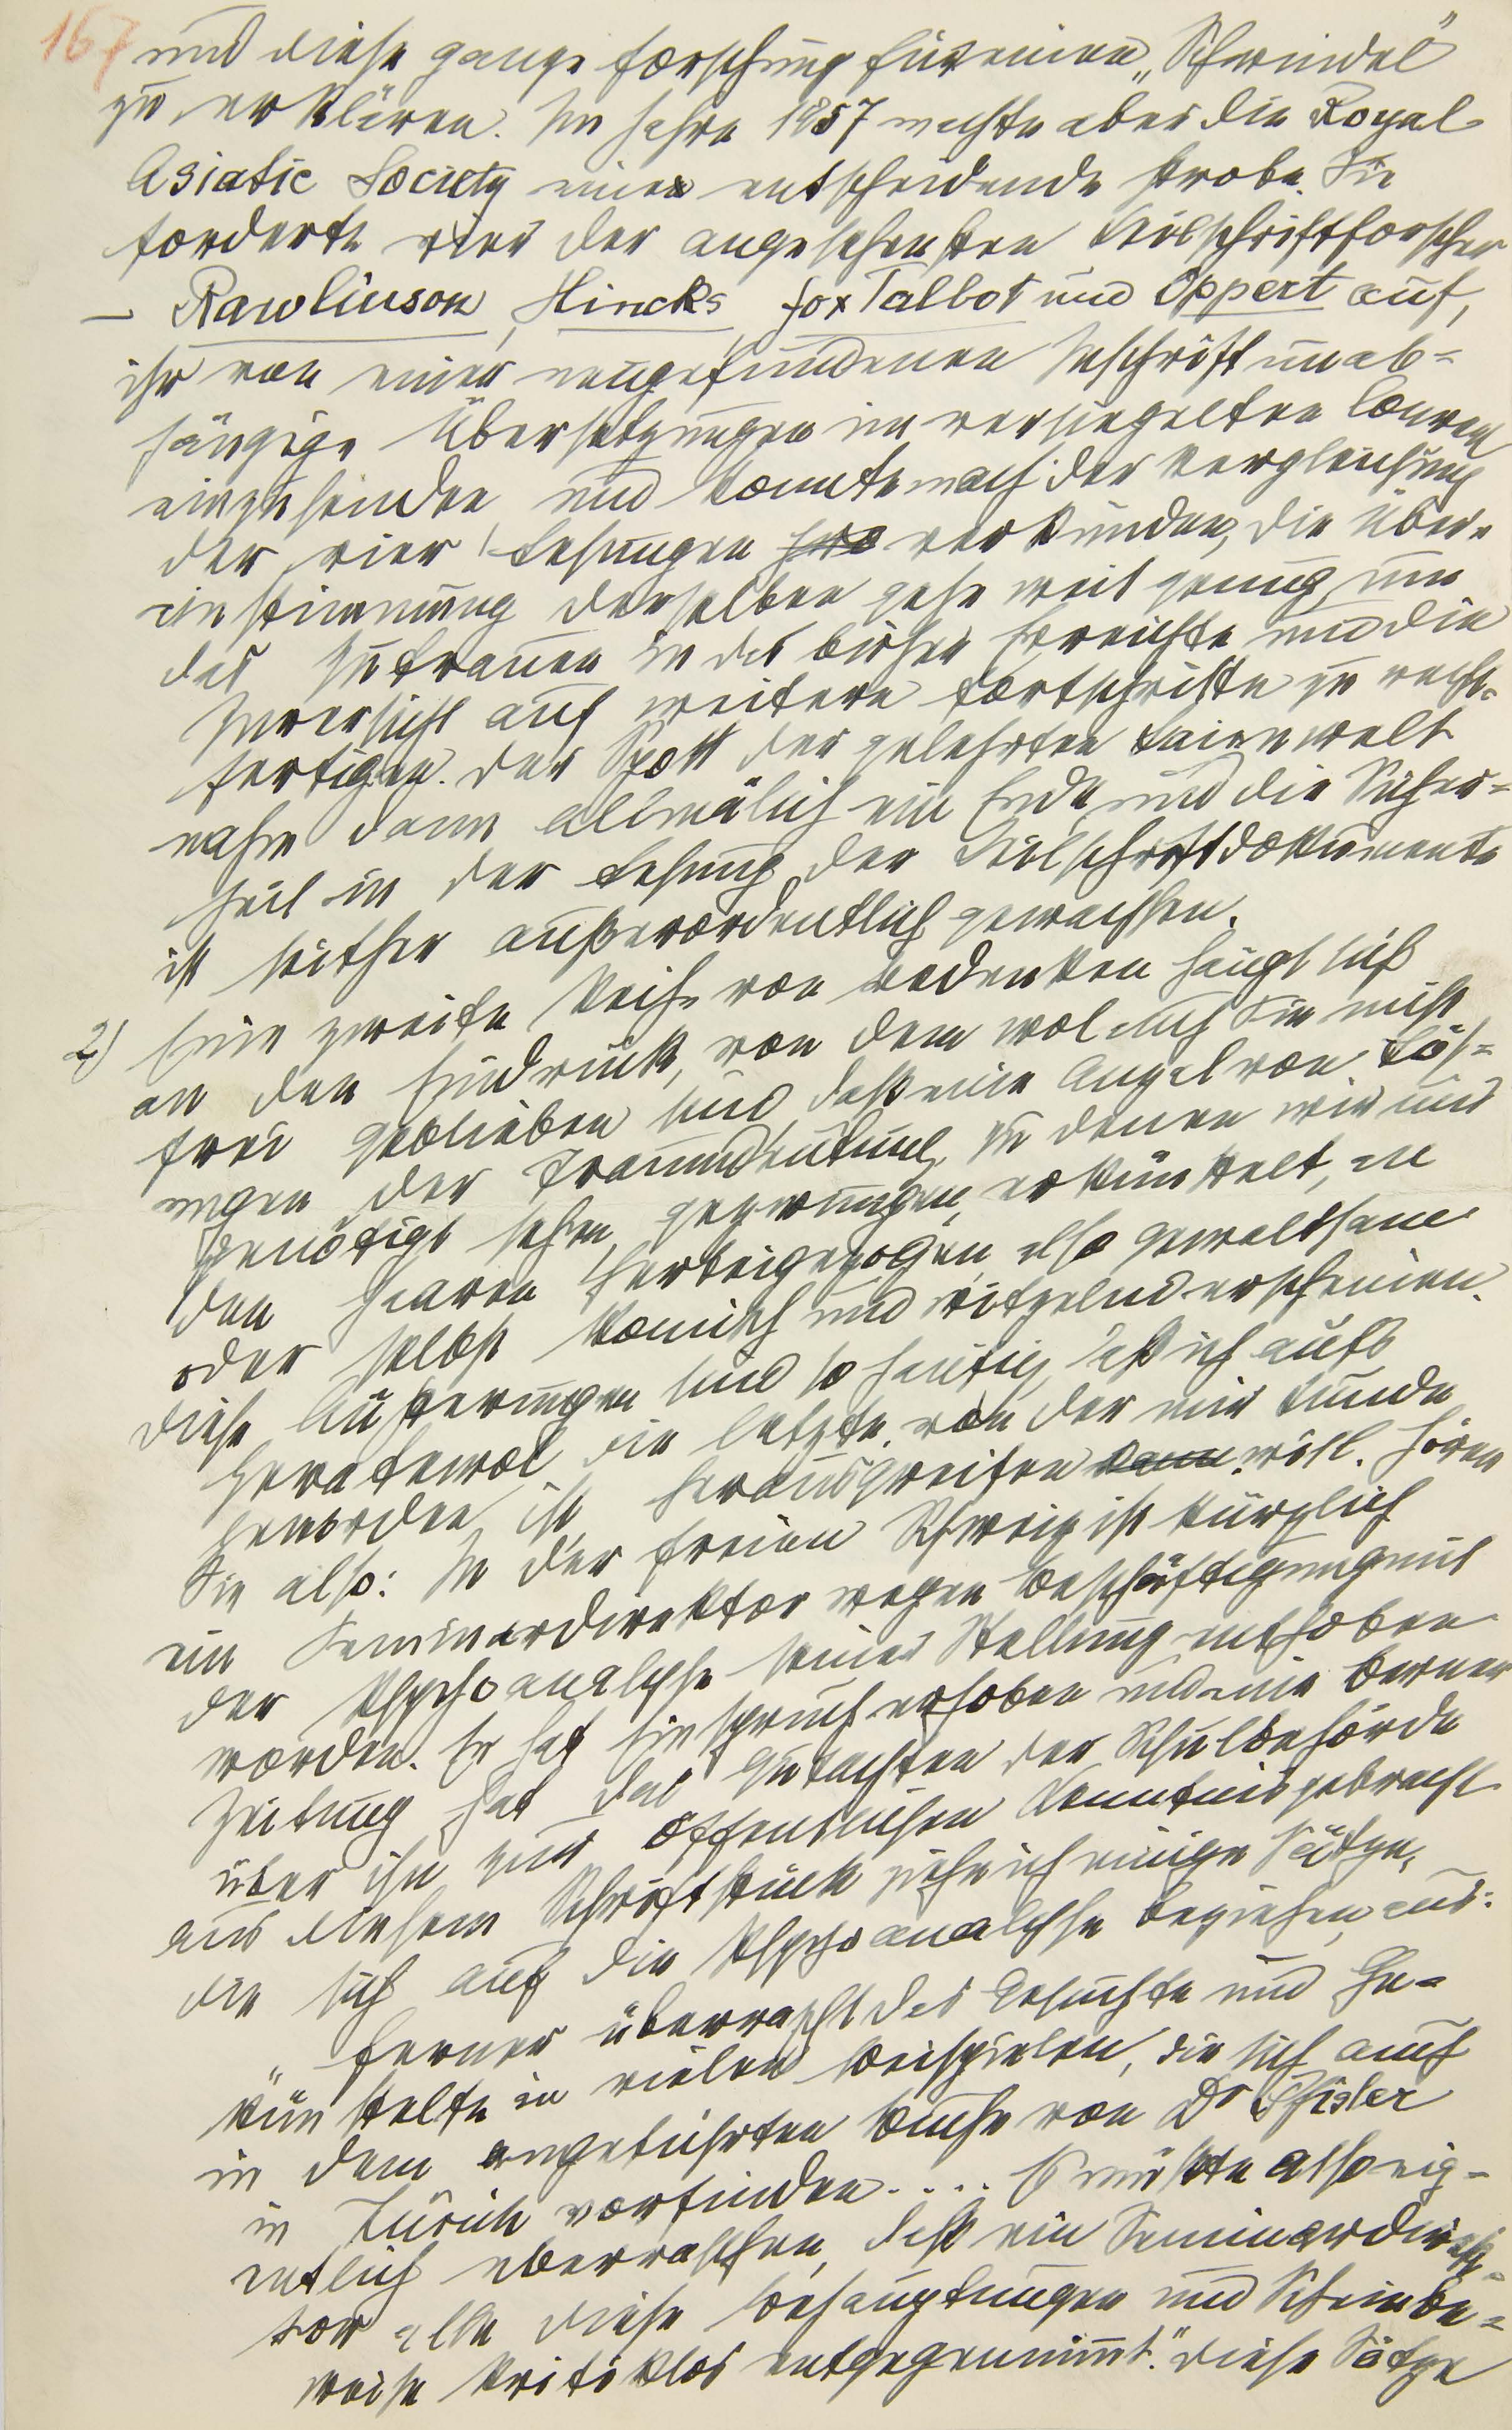 167
und diese ganze Forschung für einen „Schwindel"
zu erklären. Im Jahre 1857 machte aber die Royal
Asiatic Society eine entscheidende Probe. Sie
forderte vier der angesehensten Keilschriftforscher
– Rawlinson, Hincks, Fox Talbot und Oppert auf,
ihr von einer neugefundenen Inschrift unab-
hängige Übersetzungen im versiegelten Couvert
einzusenden und konnte nach der Vergleichung
der vier Lesungen verkünden, die Über-
einstimmung derselben gehe weit genug, um
das Zutrauen in das bisher Erreichte und die
Zuversicht auf weitere Fortschritte zu recht-
fertigen. Der Spott der gelehrten Laienwelt
nahm dann allmälich ein Ende und die Sicher-
heit in der Lesung der Keilschriftdokumente
ist seither außerordentlich gewachsen.
2) Eine zweite Reihe von Bedenken hängt sich
an den Eindruck, von dem wol auch Sie nicht
frei geblieben sind, daß eine Anzal von Lös-
ungen der Traumdeutung, zu denen wir uns
genötigt sehen, gezwungen, erkünstelt, an
den Haaren herbeigezogen, also gewaltsam
oder selbst komisch und witzelnd erscheinen.
Diese Äußerungen sind so häufig, daß ich aufs
Geratewol die letzte, von der mir Kunde
geworden ist, herausgreifen kann will. Hören
Sie also: In der freien Schweiz ist kürzlich
ein Seminardirektor wegen Beschäftigung mit
der Psychoanalyse seiner Stellung enthoben
worden. Er hat Einspruch erhoben und eine Berner
Zeitung hat das Gutachten der Schulbehörde
über ihn zur öffentlichen Kenntnis gebracht.
Aus diesem Schriftstück ziehe ich einige Sätze,
die sich auf die Psychoanalyse beziehen, aus:
„Ferner überrascht das Gesuchte und Ge-
künstelte in vielen Beispielen, die sich auch
in dem angeführten Buche von Dr Pfister
in Zürich vorfinden .... Es müßte also eig-
entlich überraschen, daß ein Seminardirek-
tor alle diese Behauptungen und Scheinbe-
weise kritiklos entgegennimmt." Diese Sätze